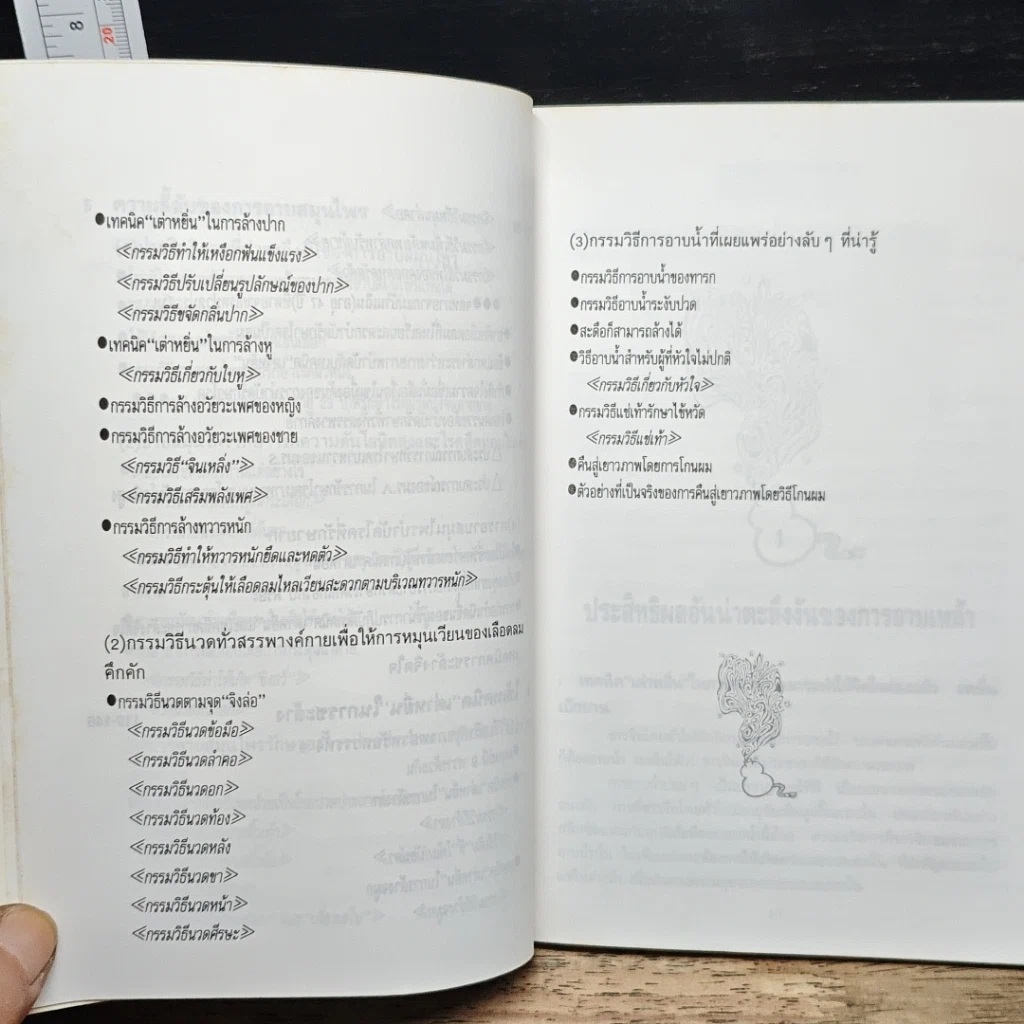 8
20
●เทคนิค“เต่าหยิ่น”ในการล้างปาก
≪กรรมวิธีทำให้เหงือกฟันแข็งแรง≫
≪กรรมวิธีปรับเปลี่ยนรูปลักษณ์ของปาก≫
≪กรรมวิธีขจัดกลิ่นปาก≫
●เทคนิค“เต่าหยิ่น”ในการล้างหู
≪กรรมวิธีเกี่ยวกับใบหู≫
●กรรมวิธีการล้างอวัยวะเพศของหญิง
●กรรมวิธีการล้างอวัยวะเพศของชาย
≪กรรมวิธี“จินเหลิ่ง”≫
≪กรรมวิธีเสริมพลังเพศ≫
●กรรมวิธีการล้างทวารหนัก
≪กรรมวิธีทำให้ทวารหนักยืดและหดตัว≫
≪กรรมวิธีกระตุ้นให้เลือดลมไหลเวียนสะดวกตามบริเวณทวารหนัก≫
(2)กรรมวิธีนวดทั่วสรรพางค์กายเพื่อให้การหมุนเวียนของเลือดลม
คึกคัก
●กรรมวิธีนวดตามจุด“จิงล่อ”
≪กรรมวิธีนวดข้อมือ≫
≪กรรมวิธีนวดลำคอ≫
≪กรรมวิธีนวดอก≫
≪กรรมวิธีนวดท้อง≫
≪กรรมวิธีนวดหลัง
≪กรรมวิธีนวดขา≫
≪กรรมวิธีนวดหน้า≫
≪กรรมวิธีนวดศีรษะ≫
(3)กรรมวิธีการอาบน้ำที่เผยแพร่อย่างลับ ๆ ที่น่ารู้
●กรรมวิธีการอาบน้ำของทารก
●กรรมวิธีอาบน้ำระงับปวด
●สะดือก็สามารถล้างได้
●วิธีอาบน้ำสำหรับผู้ที่หัวใจไม่ปกติ
≪กรรมวิธีเกี่ยวกับหัวใจ≫
●กรรมวิธีแช่เท้ารักษาไข้หวัด
≪กรรมวิธีแช่เท้า≫
●คืนสู่เยาวภาพโดยการโกนผม
●ตัวอย่างที่เป็นจริงของการคืนสู่เยาวภาพโดยวิธีโกนผม